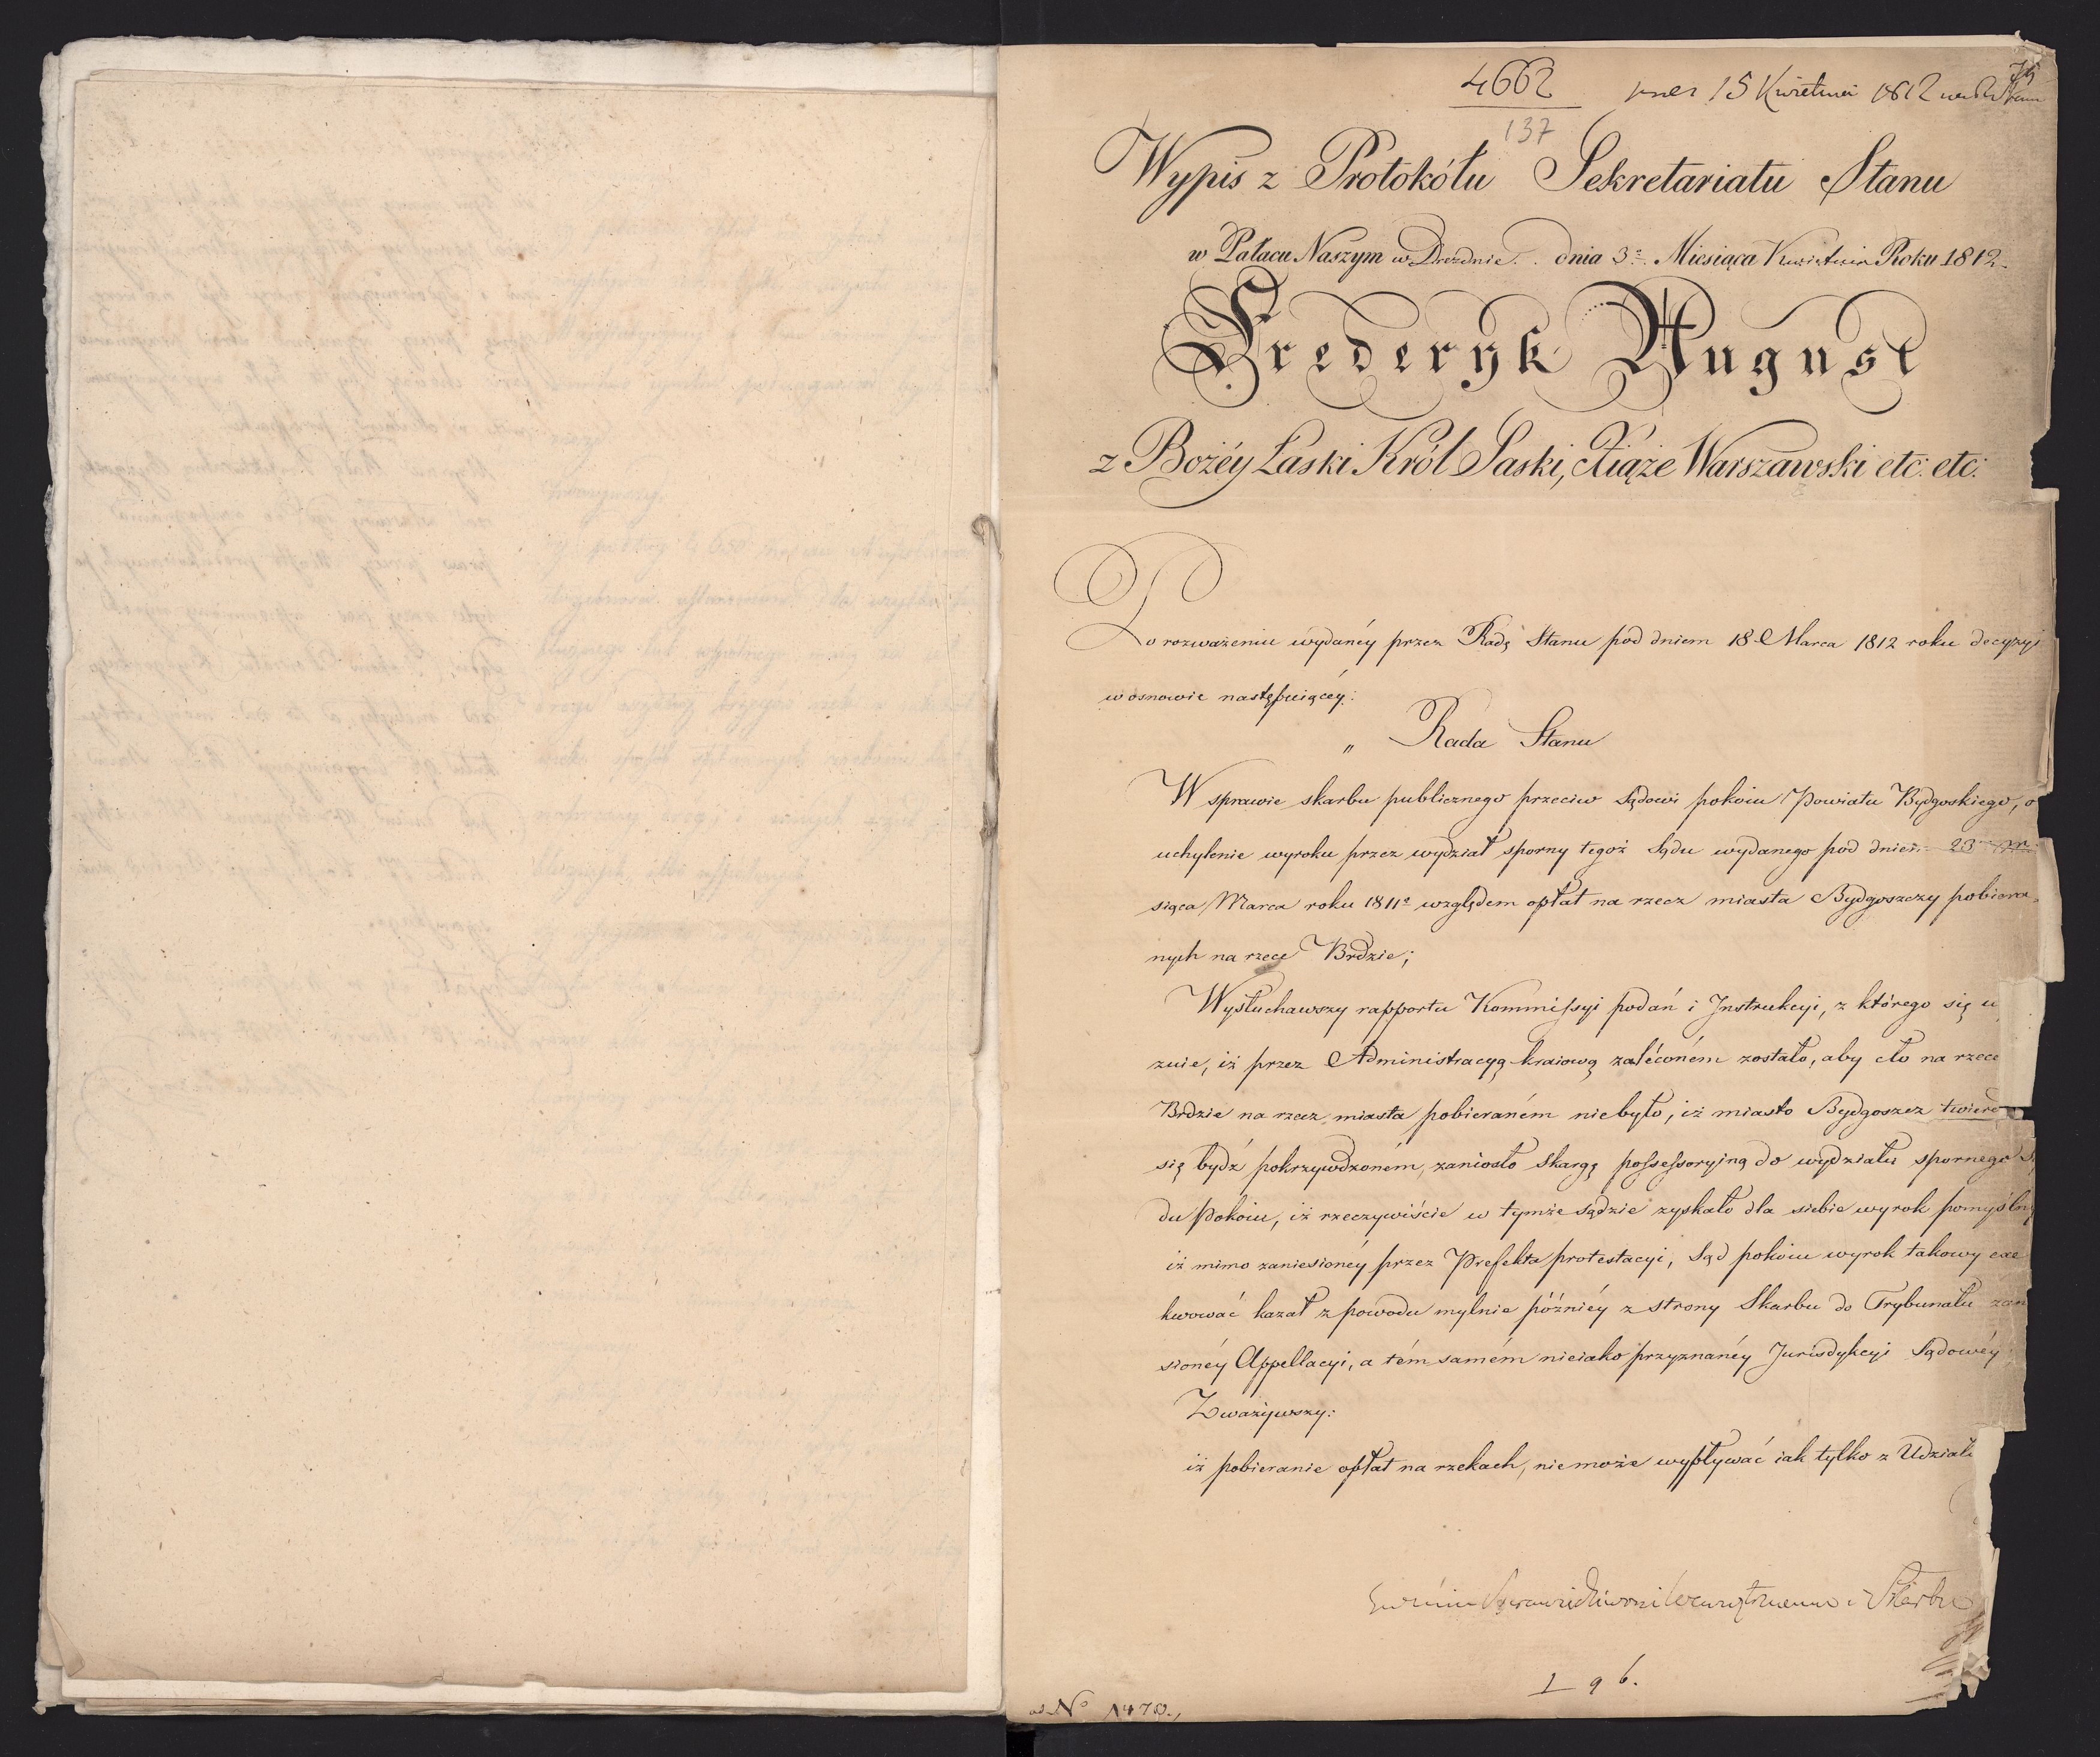 4662
15 Kwietnia 1812
137
Wypis z Protokółu Sekretariatu Stanu
w Pałacu Naszym w Dreźnie. dnia 3º Miesiąca Kwietnia Roku 1812.
Frederyk August
z Bożéy Łaski Król Saski, Xiąże Warszawski etc: etc:
Po rozważeniu wydanéy przez Radę Stanu pod dniem 18 Marca 1812 roku decyzyi
w osnowie następuiącéy:
„ Rada Stanu
W sprawie skarbu publicznego przeciw Sądowi pokoiu Powiatu Bydgoskiego, o
uchylenie wyroku przez wydział sporny tegoż Sądu wydanego pod dniem 23 m
siąca Marca roku 1811º względem opłat na rzecz miasta Bydgoszczy pobiera„
nych na rzece Brdzie;
Wysłuchawszy rapportu Kommissyi podań i Instrukcyi, z którego się u
zuie, iż przez Administracyą kraiową zaléconém zostało, aby cło na rzece
Brdzie na rzecz miasta pobieraném niebyło, iż miasto Bydgoszcz twierd
się bydź pokrzywdzoném, zaniosło skargę possessoryiną do wydziału spornego S
du pokoiu, iż rzeczywiście w tymże sądzie zyskało dla siebie wyrok pomyślny
iż mimo zaniesionéy przez Prefekta protestacyi, Sąd pokoiu wyrok takowy exe
kwować kazał z powodu mylnie późniéy z strony Skarbu do Trybunału zan
sionéy Appellacyi, a tém samém nieiako przyznanéy Jurisdykcyi Sądowéy
Zważywszy:
iż pobieranie opłat na rzekach, niemoże wypływać iak tylko z Udziału
Sprawiedliwości Wewnętrznemu i Skarbu
196.
ad Nº 1470.,